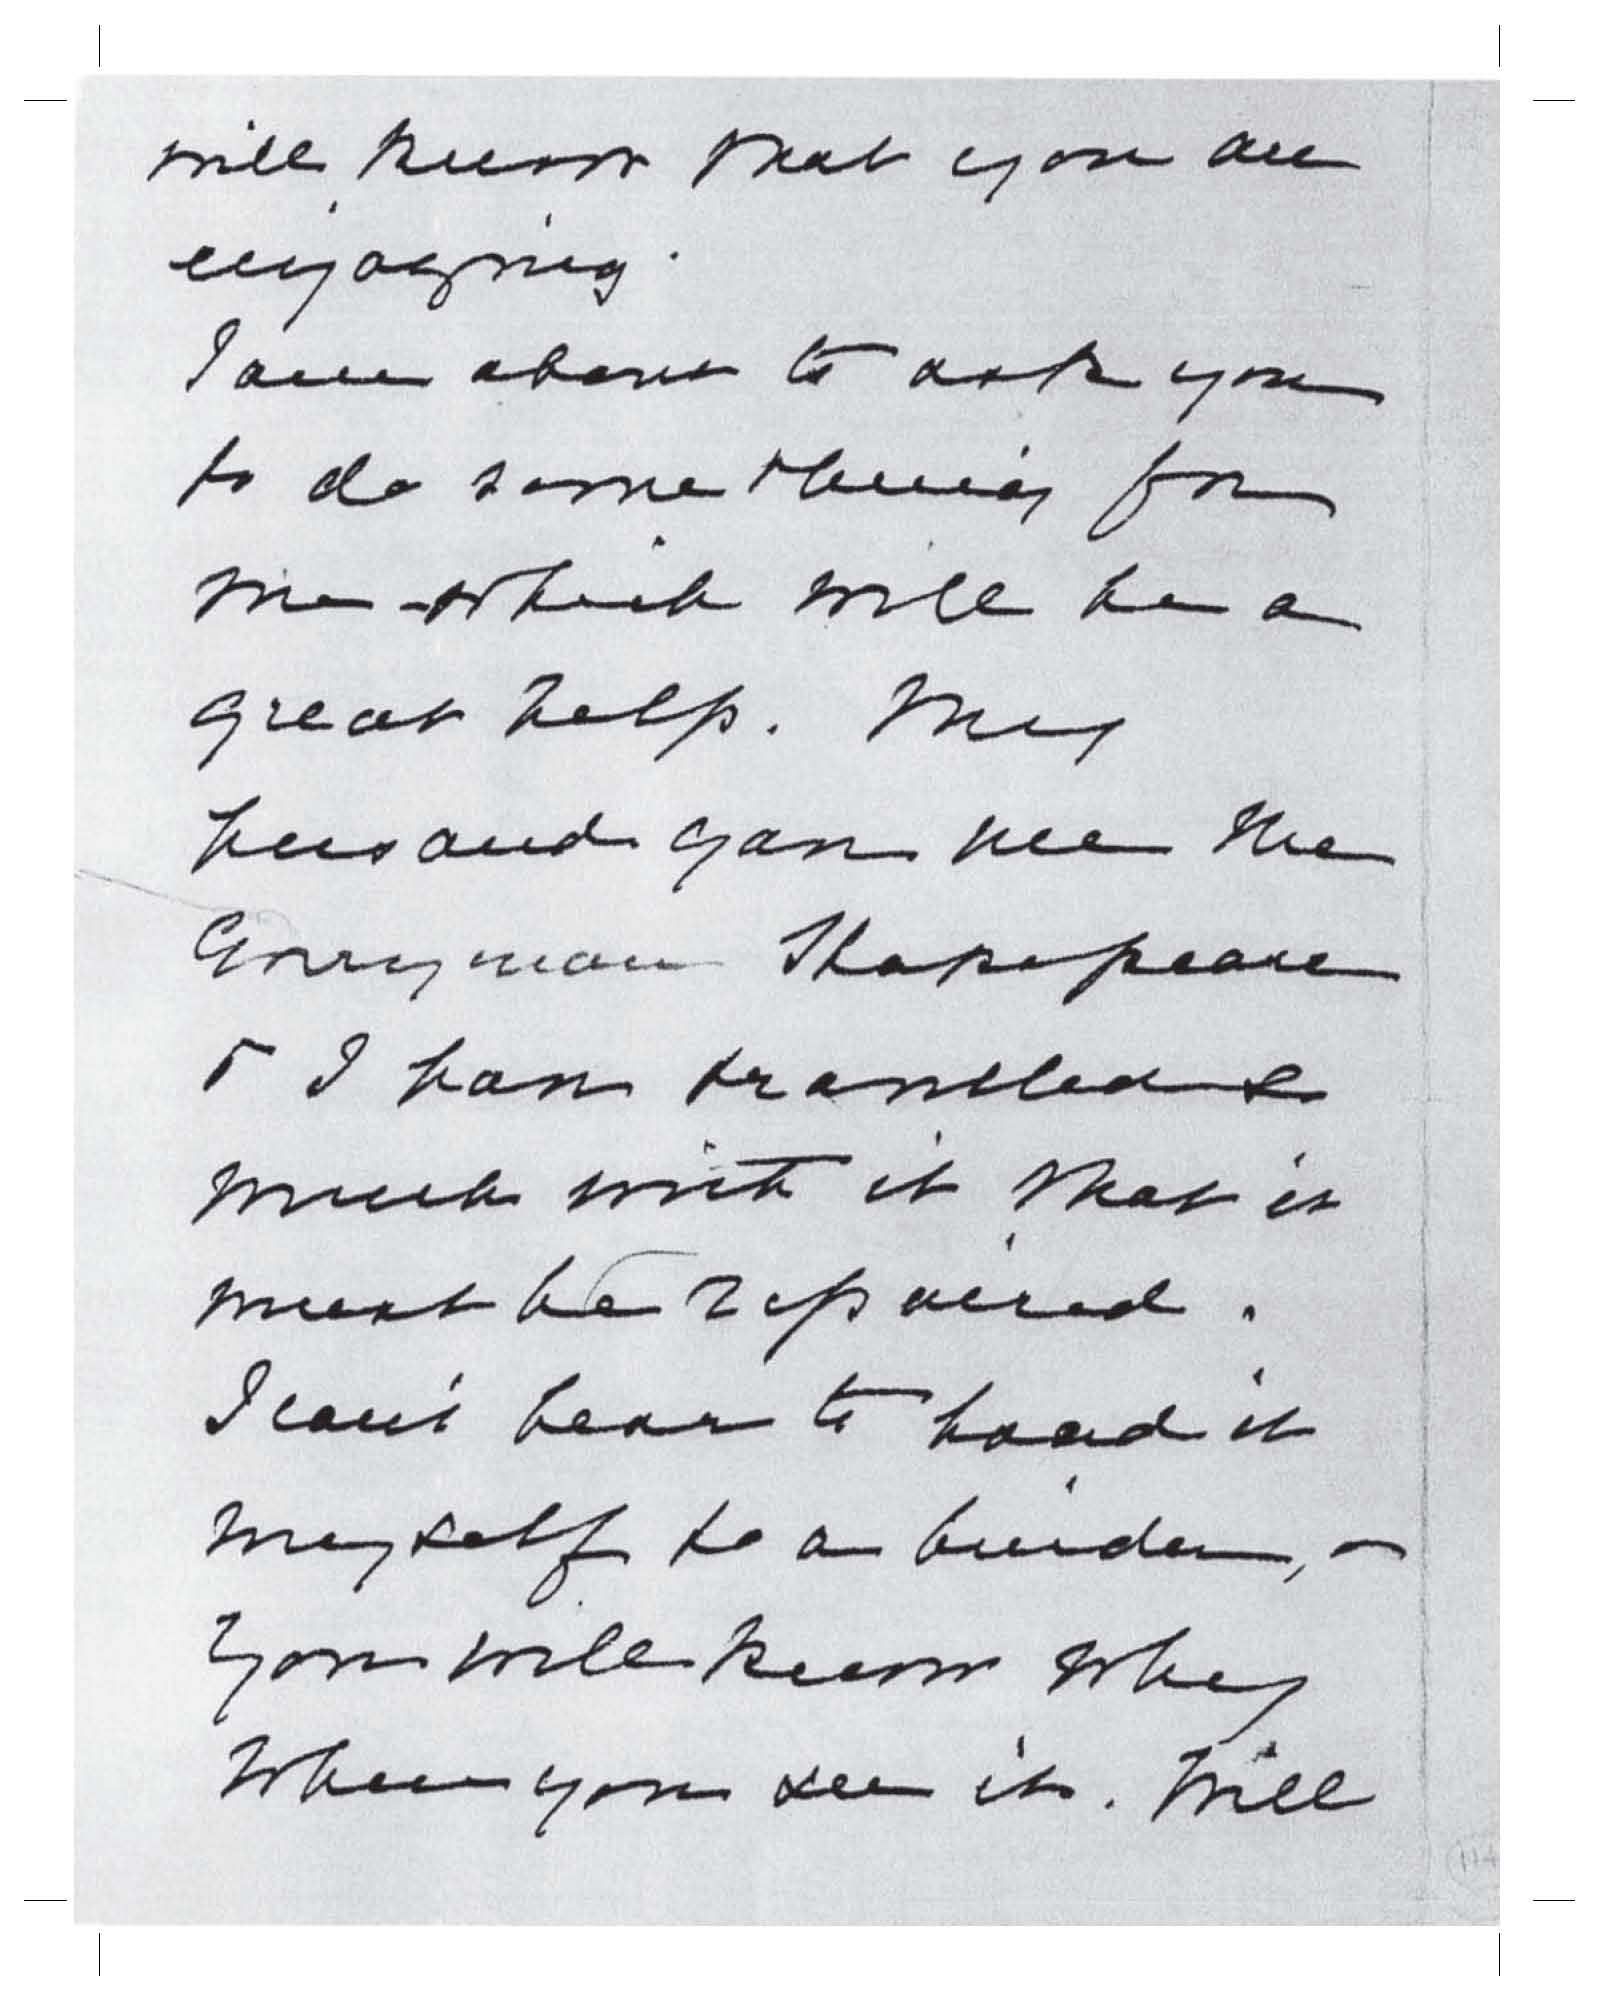 will know that you are
enjoying.
I am about to ask you
to do something for
me – which will be a
great help. My
husband gave me the
Shakespeare
& I have travelled so
much with it that it
must be repaired.
I can't bear to hand it
myself to a binder, –
You will know why
when you see it. Will